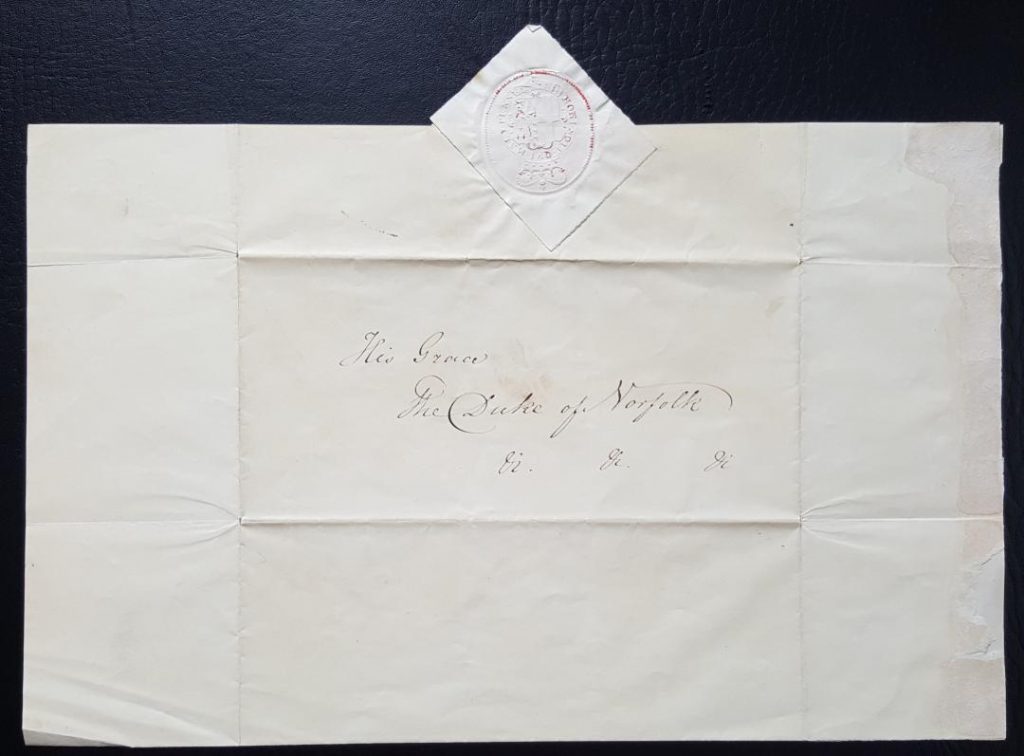 His Grace
The Duke of Norfolk
&c. &c. &c